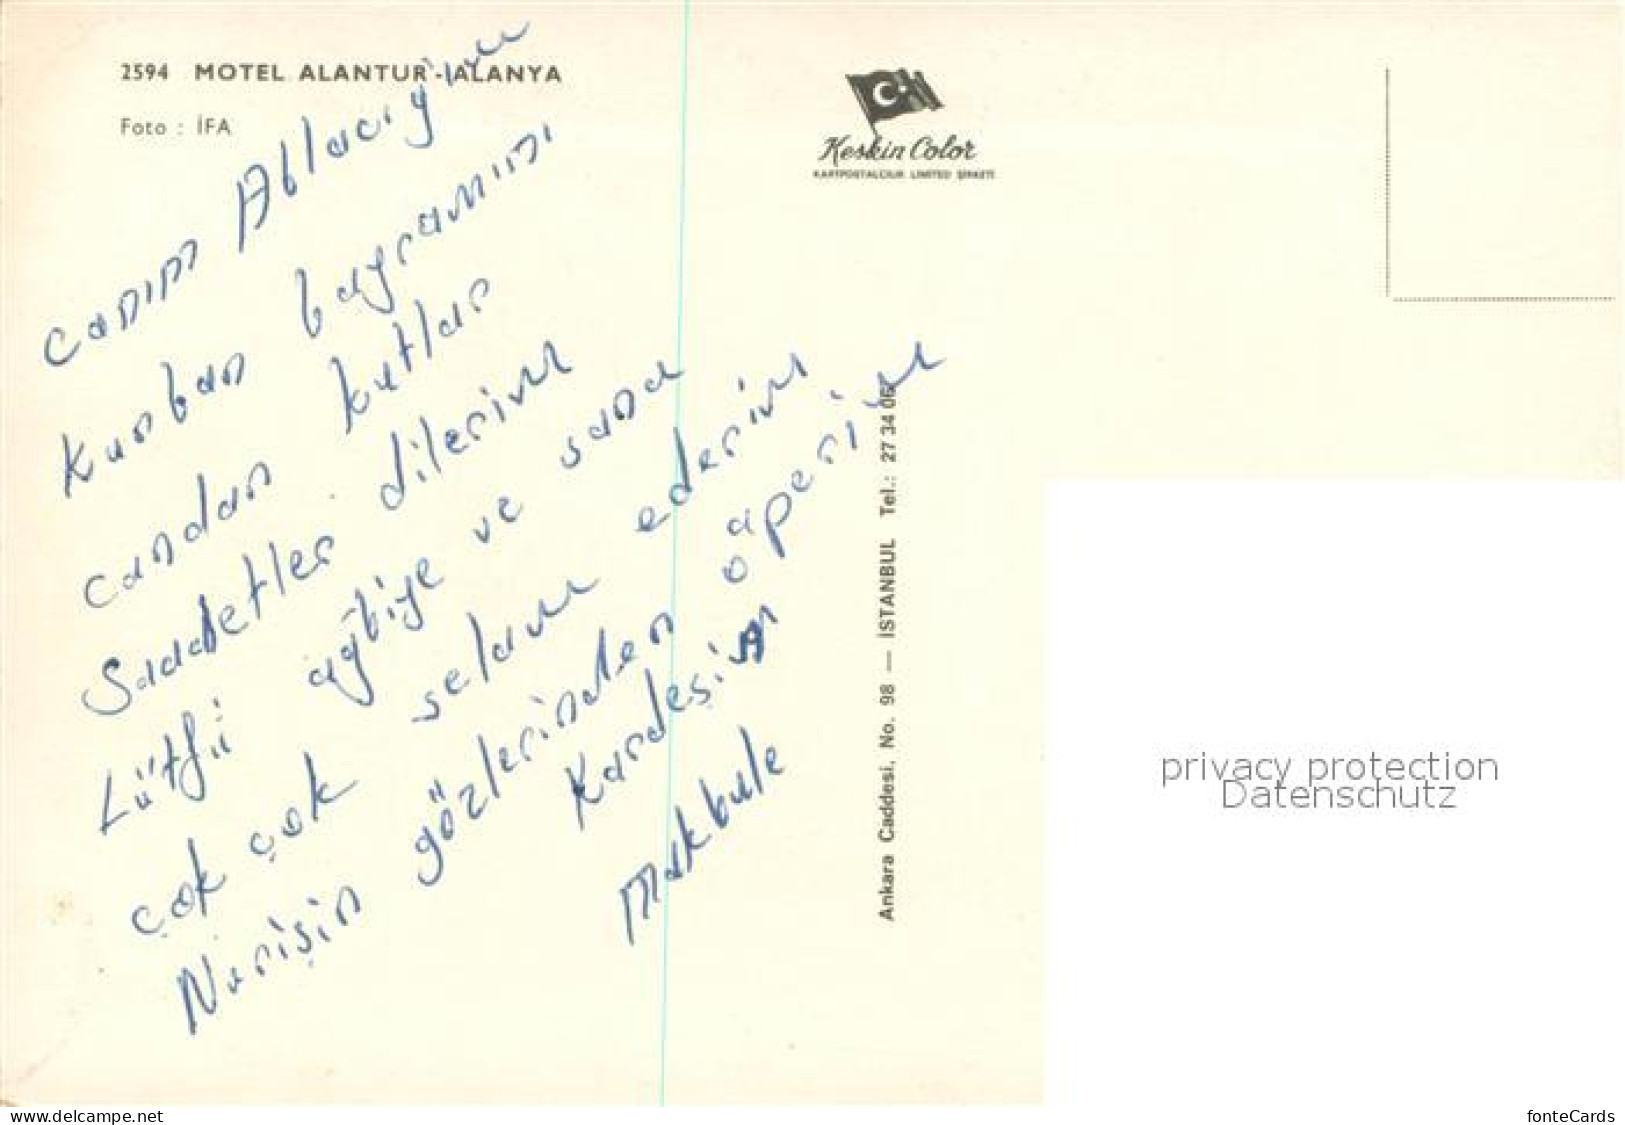 2594 MOTEL ALANTUR - ALANYA
Foto : İFA
Canım Ablacığım
Kurban bayramını
candan kutlar
Saadetler dilerim
Lütfü ağbiye ve sana
çok çok selam ederim
Nurişin gözlerinden öperim
Kardeşin
Makbule
Keskin Color
KARTPOSTALCILIK LIMITED ŞİRKETİ
Ankara Caddesi, No. 98 — İSTANBUL Tel.: 27 34 06
privacy protection
Datenschutz
www.delcampe.net
fonteCards